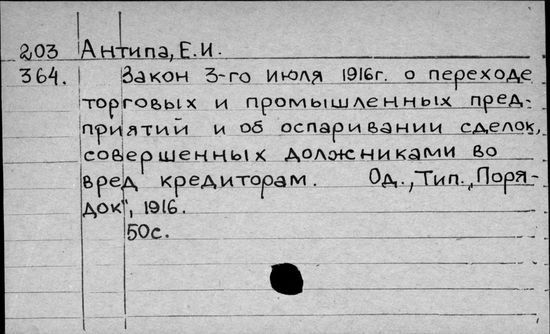 203 Антипа, Е.И.
364. Закон 3-го июля 1916г. о переходе
торговых и промышленных пред-
приятий и об оспаривании сделок,
совершенных должниками во
вред кредиторам. Од., Тип. „Поря-
док", 1916.
50с.